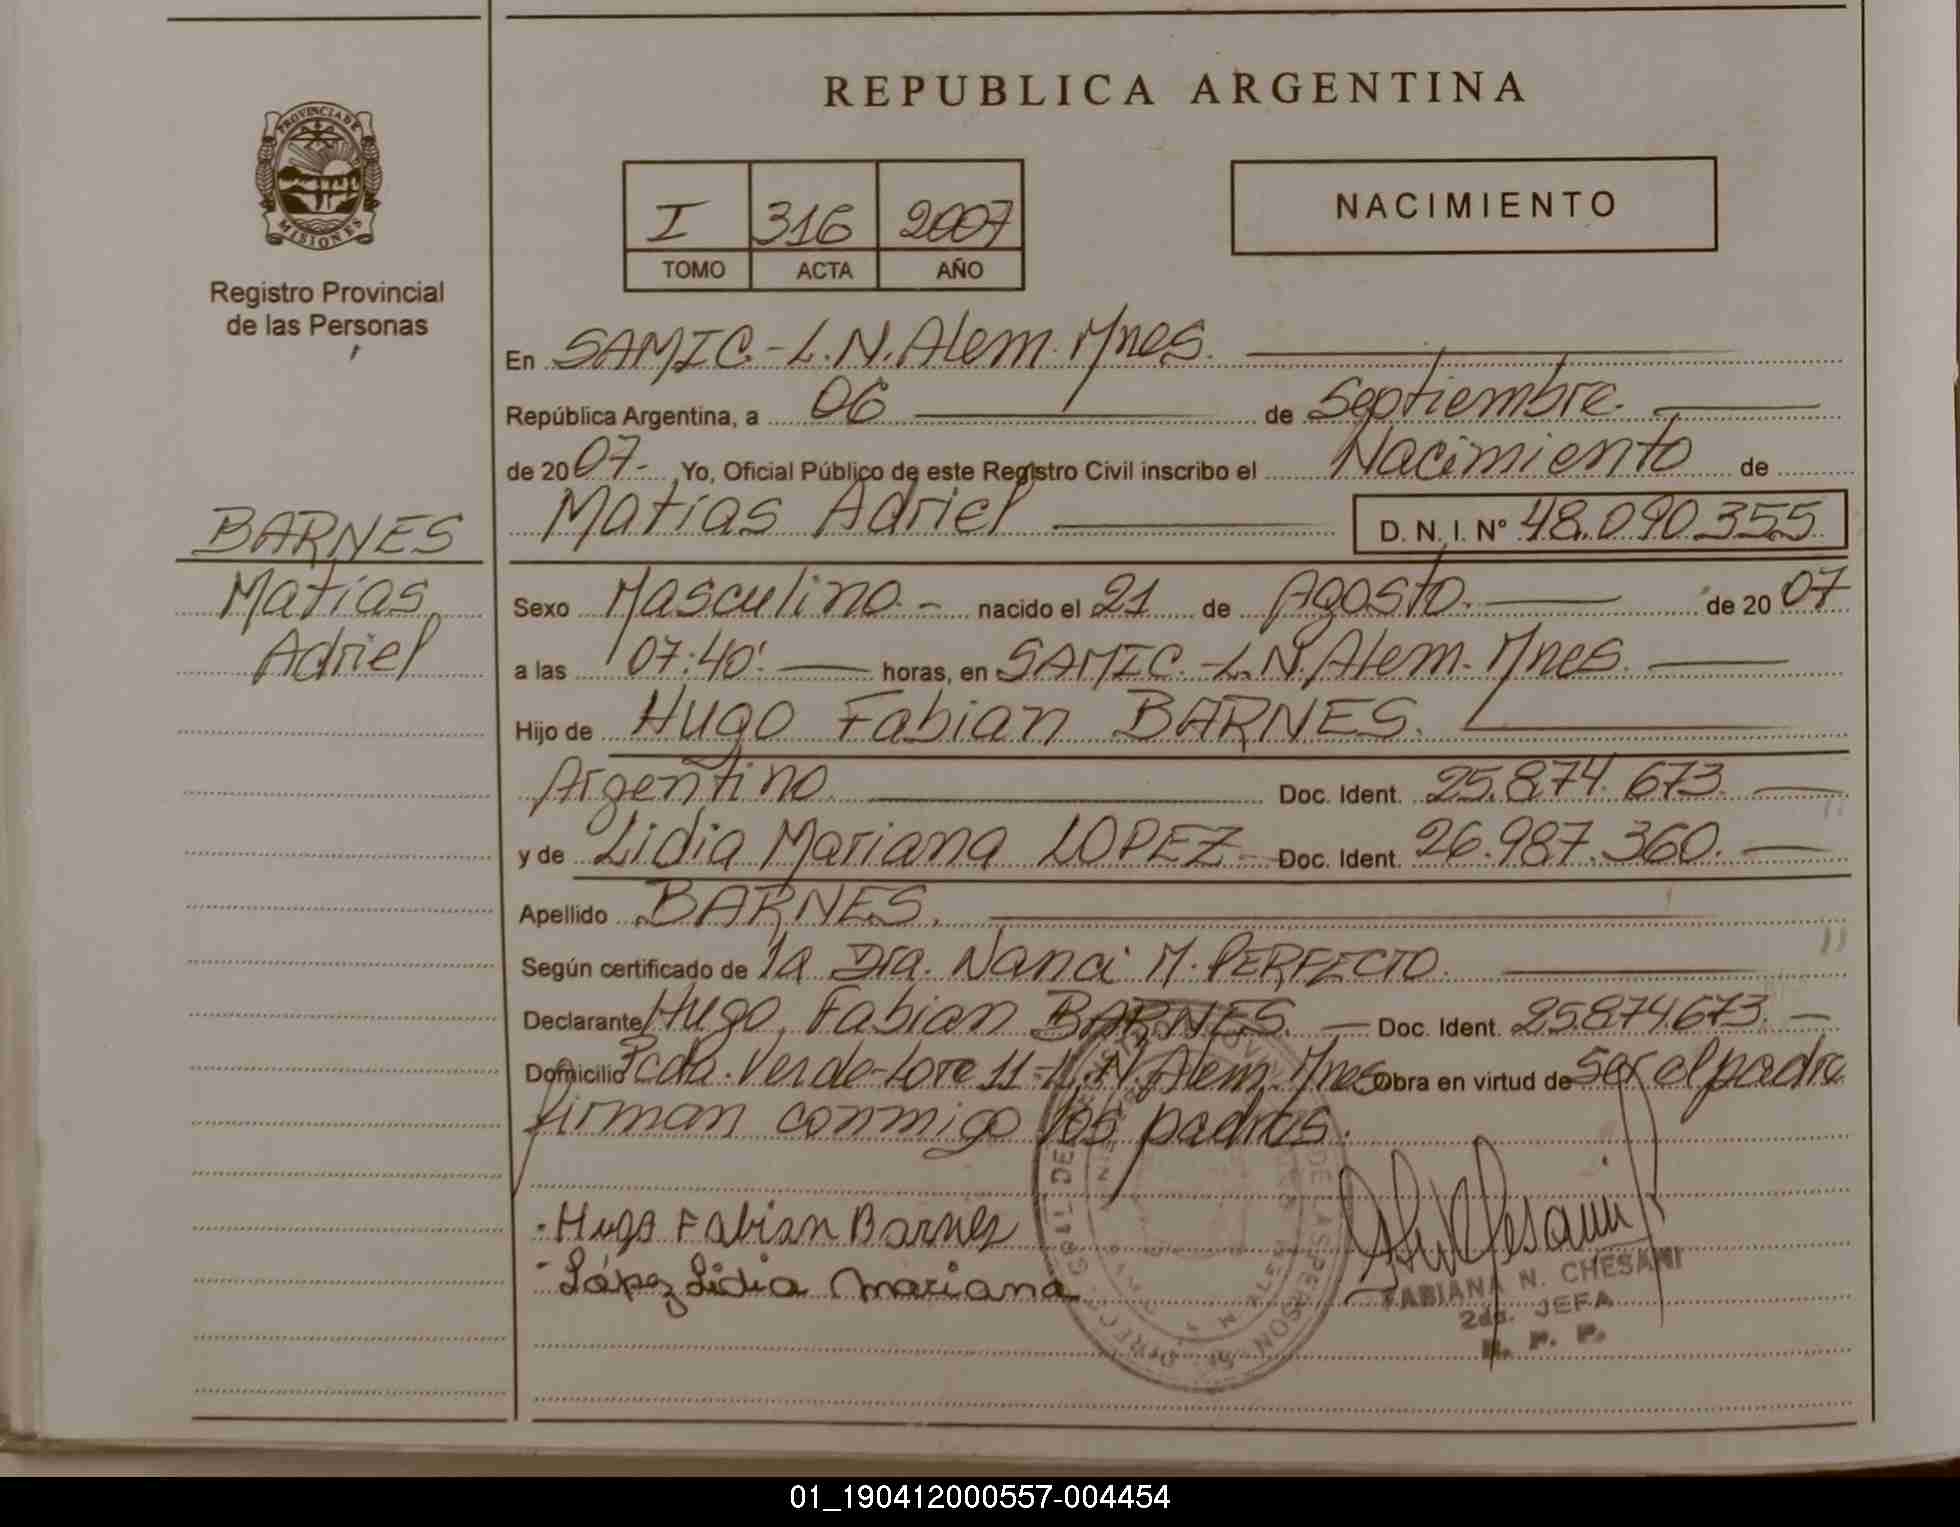 REPUBLICA ARGENTINA
PROVINCIA DE
MISIONES
Registro Provincial
de las Personas
I 316 2007
TOMO ACTA AÑO
NACIMIENTO
En SAMIC.-L.N.Alem.Mnes.
República Argentina, a 06 de Septiembre.
de 20 07.- Yo, Oficial Público de este Registro Civil inscribo el Nacimiento de
Matías Adriel D. N. I. Nº 48.090.355
BARNES
Matías
Adriel
Sexo Masculino.- nacido el 21 de Agosto. de 20 07
a las 07:40'. horas, en SAMIC.-L.N.Alem.Mnes.
Hijo de Hugo Fabian BARNES.
Argentino. Doc. Ident. 25.874.673.
y de Lidia Mariana LOPEZ- Doc. Ident. 26.987.360.
Apellido BARNES.
Según certificado de la Dra. Nanci M. PERFECTO.
Declarante Hugo Fabian BARNES. Doc. Ident. 25874673.
Domicilio Pcda. Verde-Lote 11-L.N.Alem.Mnes Obra en virtud de ser el padre
firman conmigo los padres.
- Hugo Fabian Barnes
- López Lidia Mariana
FABIANA N. CHESANI
2da. JEFA
R. P. P.
01_190412000557-004454